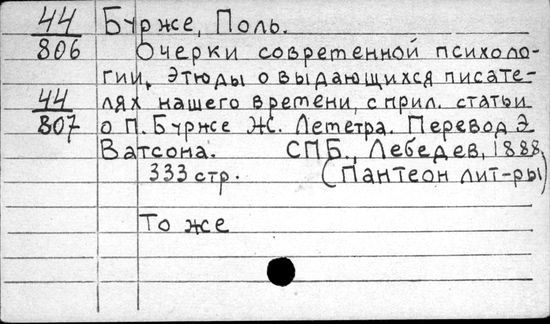 44 Бурже, Поль.
806 Очерки современной психоло-
гии, Этюды о выдающихся писате-
44 лях нашего времени, с прил. статьи
807 о П. Бурже Ж. Леметра. Перевод Э.
Ватсона. СПБ., Лебедев, 1888,
333 стр. (Пантеон лит-ры)
То же